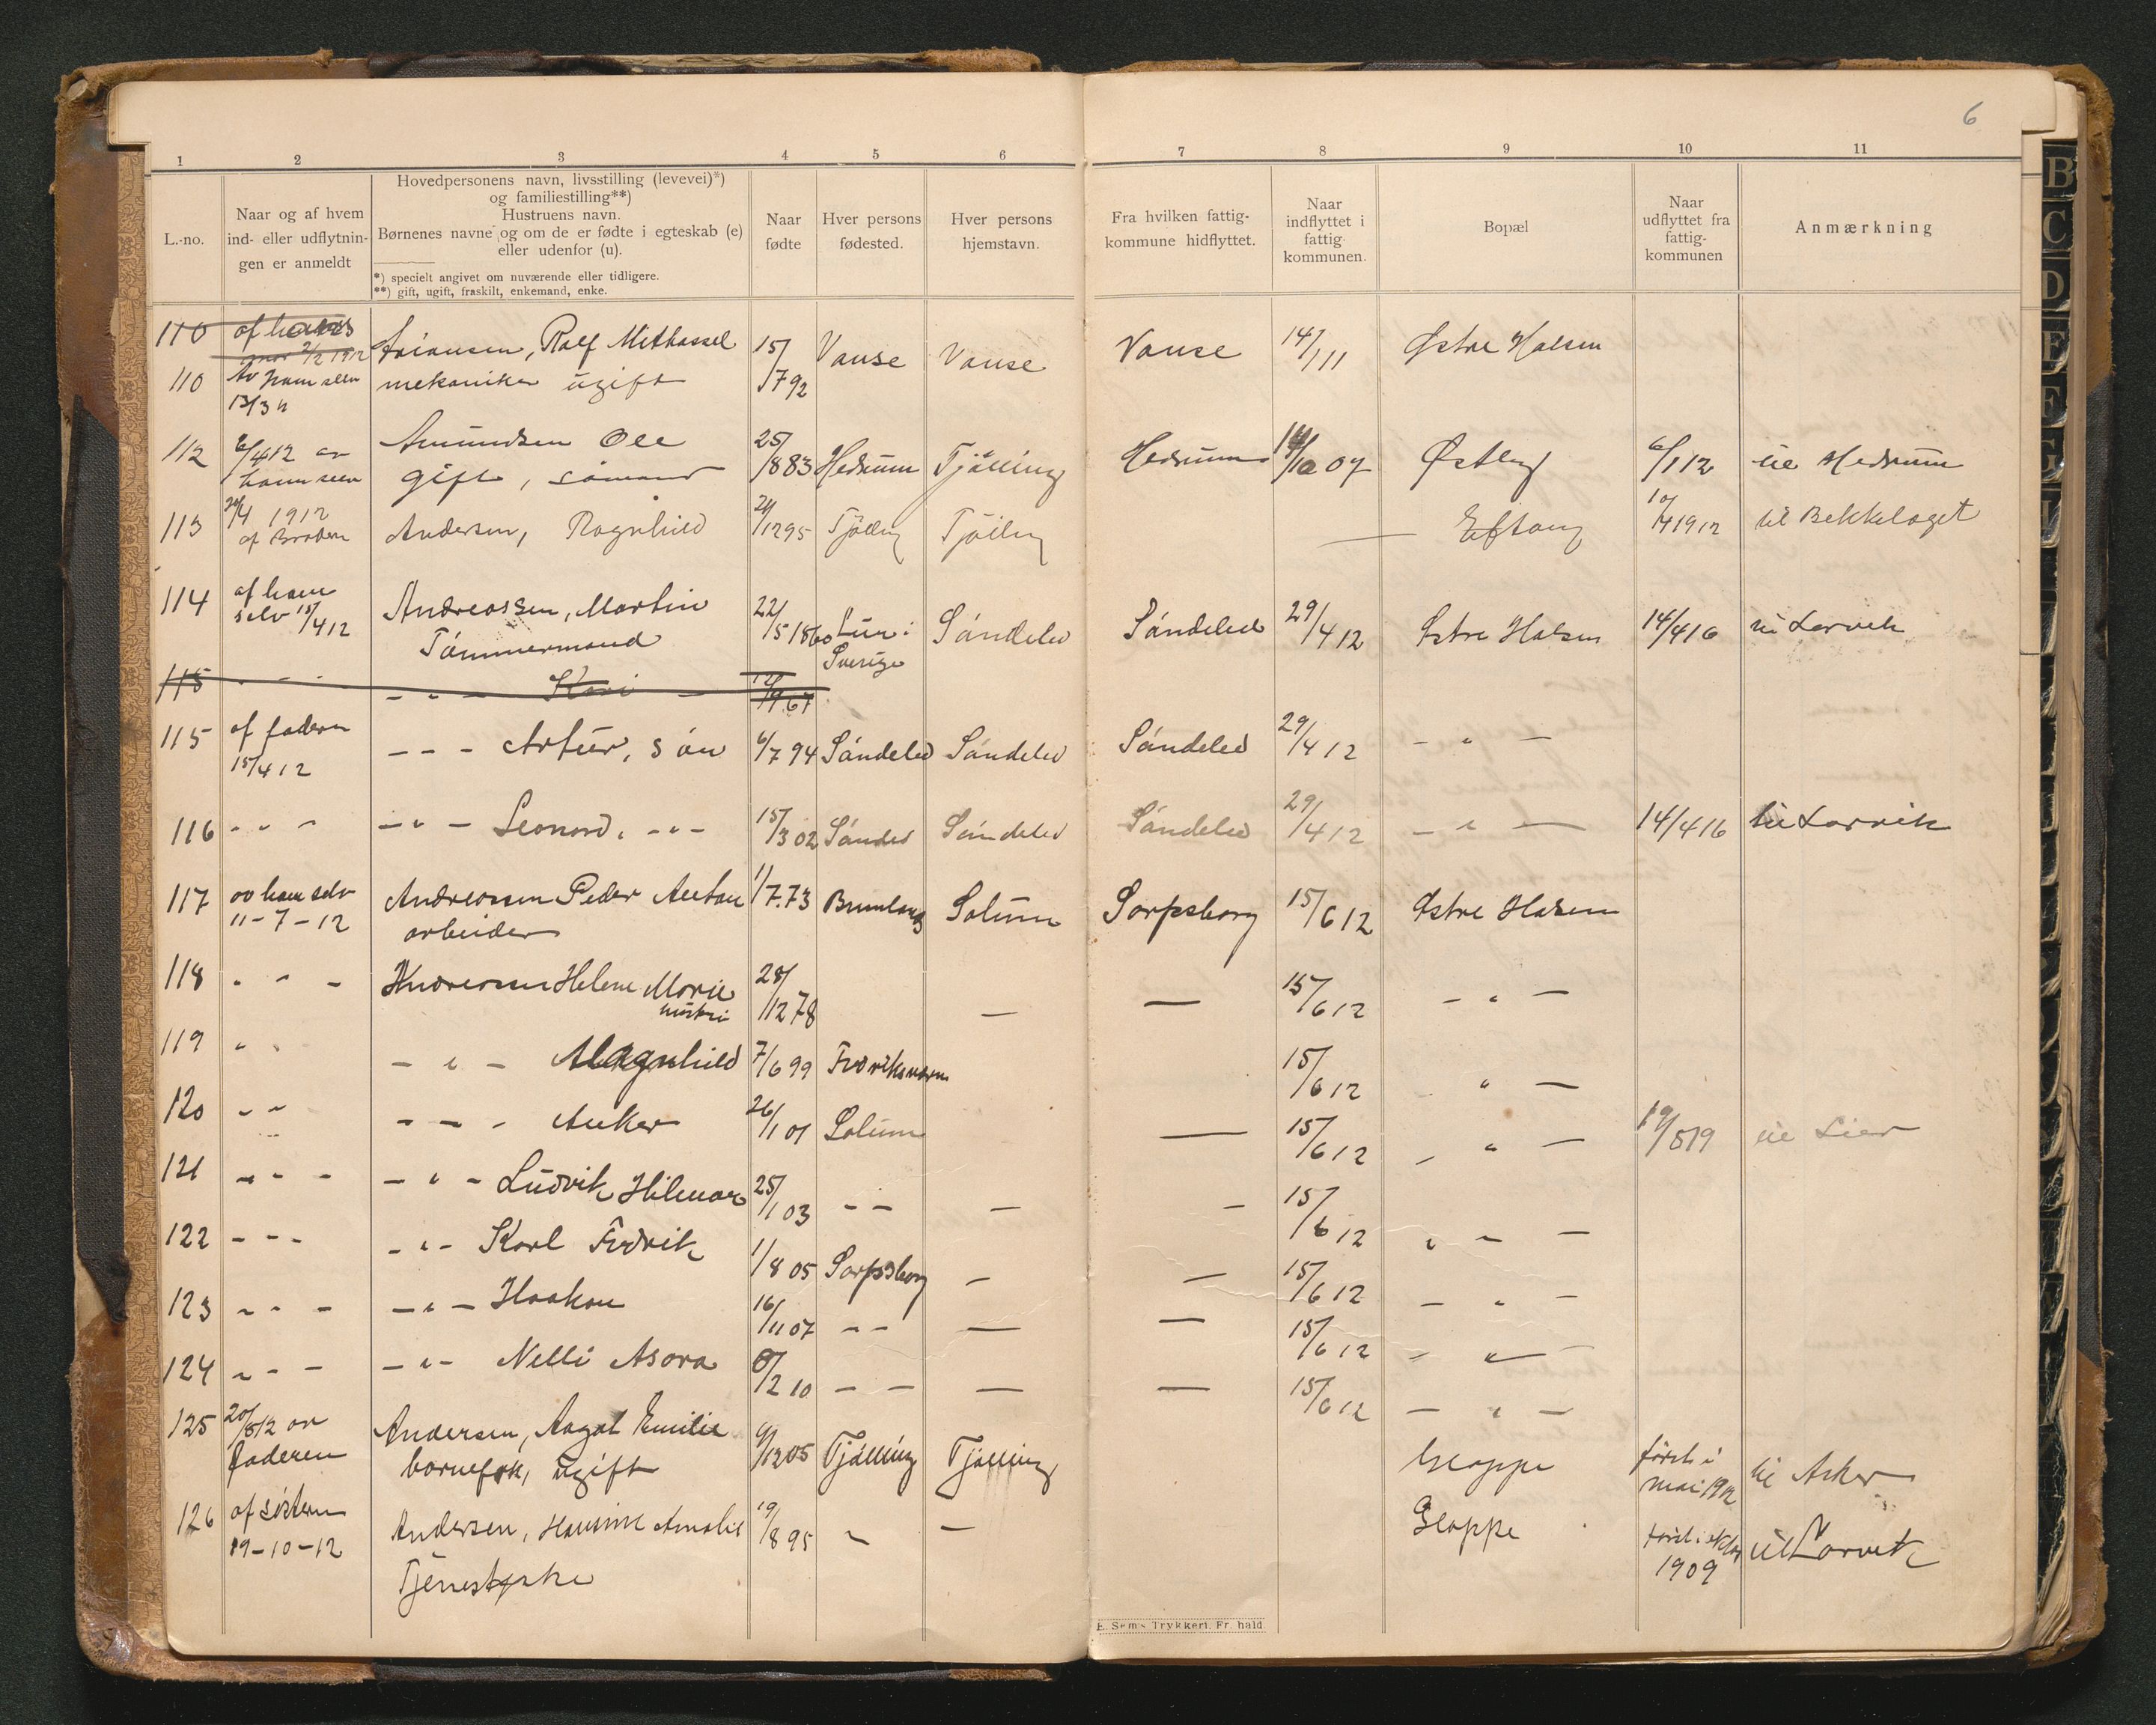 6
1 2 3 4 5 6 7 8 9 10 11
L.-no.
Naar og af hvem
ind- eller udflytnin-
gen er anmeldt
Hovedpersonens navn, livsstilling (levevei)*)
og familiestilling**)
Hustruens navn.
Børnenes navne og om de er fødte i egteskab (e)
eller udenfor (u).
*) specielt angivet om nuværende eller tidligere.
**) gift, ugift, fraskilt, enkemand, enke.
Naar
fødte
Hver persons
fødested.
Hver persons
hjemstavn.
Fra hvilken fattig-
kommune hidflyttet.
Naar
indflyttet i
fattig-
kommunen.
Bopæl
Naar
udflyttet fra
fattig-
kommunen
Anmærkning
110 2/2 1912 Rolf 15/792 Vanse Vanse Vanse 14/1 11 Østre Halsen
110 Av ham selv mekaniker ugift
13/3 12
112 6/4 12 av Amundsen Ole 25/8 83 Hedrum Tjølling Hedrum 07 Østby 6/1 12 til Hedrum
ham selv gift, sømand
113 20/4 1912 Andersen, Ragnhild 21/12 95 Tjølling Tjølling — Eftang 10/4 1912 til Bekkelaget
af Broderen
114 af ham Andreassen, Martin 22/5 1860 Lur i Söndeled Söndeled 29/4 12 Østre Halsen 14/4 16 til Larvik
selv 15/4 12 Tömmermand Sverige
115 - - - - " - Kari - 12/9 67
115 af faderen - - - Artur, sön 6/7 94 Söndeled Söndeled Söndeled 29/4 12 - " -
15/4 12
116 - - - - " - Leonard, - " - 15/3 02 Sönded Söndeled Söndeled 29/4 12 - " - 14/4 16 til Larvik
117 av ham selv Andreassen Peder Anton 1/7.73 Brunlanes Solum Sarpsborg 15/6 12 Østre Halsen
11-7-12 arbeider
118 - - - Andreassen Helene Marie 28/12 78 — — 15/6 12 - " -
hustru
119 " - - " - Magnhild 7/6 99 Fredriksværn 15/6 12 - " -
120 - - - - - Anker 26/1 01 Solum — 15/6 12 - " - 19/5 19 til Lier
121 - - - - " - Ludvik Hilmar 25/1 03 - - — - 15/6 12 " - -
122 - - - - " - Karl Fredrik 1/8 05 Sarpsborg - — 15/6 12 - " -
123 - - - - " - Haakon 16/11 07 - - — — 15/6 12 - " -
124 - - - - " - Nelli Asora 8/2 10 - - — — 15/6 12 - " -
125 20/8 12 av Andersen, Aagot Emilie 9/12 05 Tjölling Tjölling Gloppe först i til Asker
faderen ugift mai 1912
126 af søstern Andersen, Amalie 19/8 95 - - Gloppe först i oktbr til Larvik
19-10-12 1909
Tjenestpike
E. Sem's Trykkeri, Fr. hald.
B
C
D
E
F
G